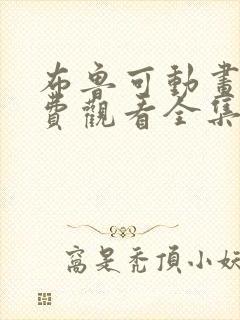 布魯可動畫
費觀看全集
窩是禿頂小妖